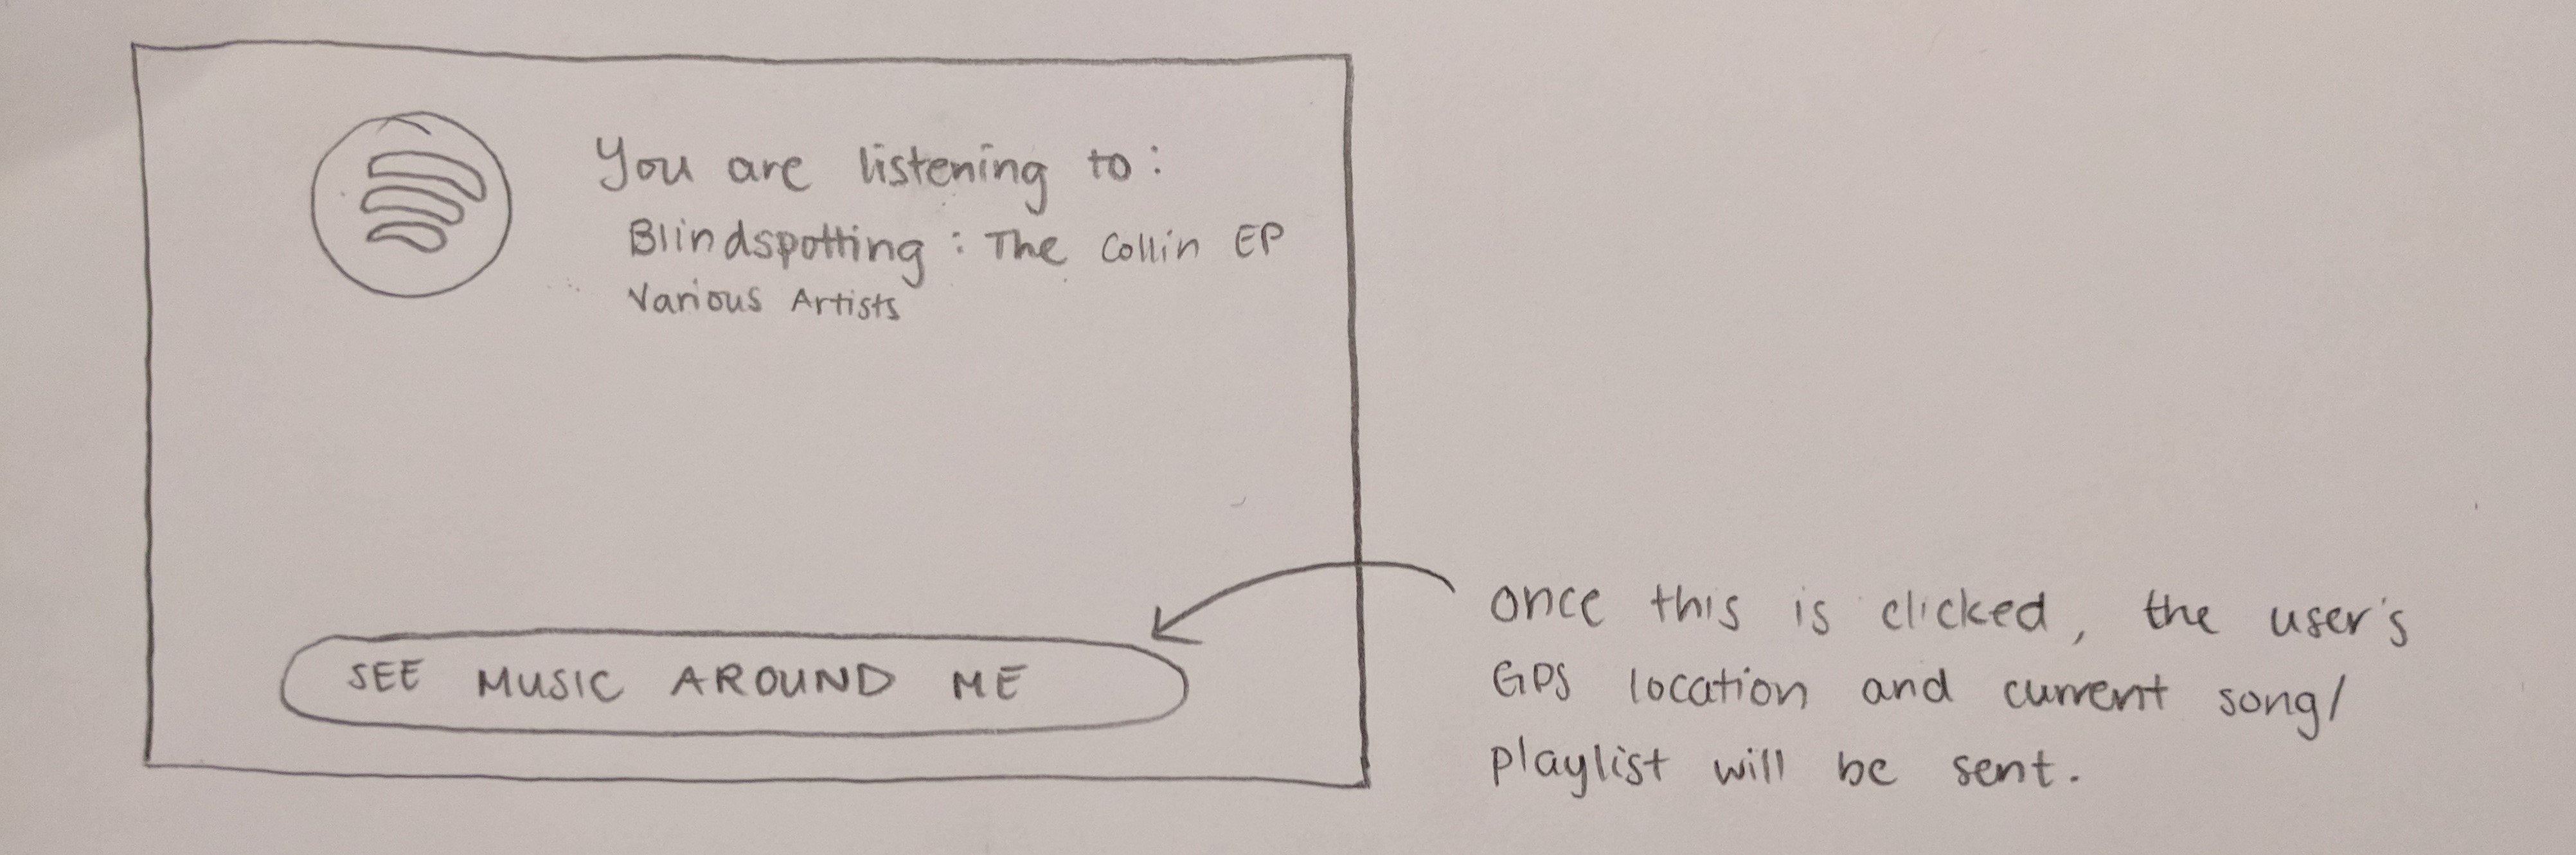 You are listening to:
Blindspotting : The Collin EP
Various Artists
SEE MUSIC AROUND ME
once this is clicked, the user's
GPS location and current song/
playlist will be sent.